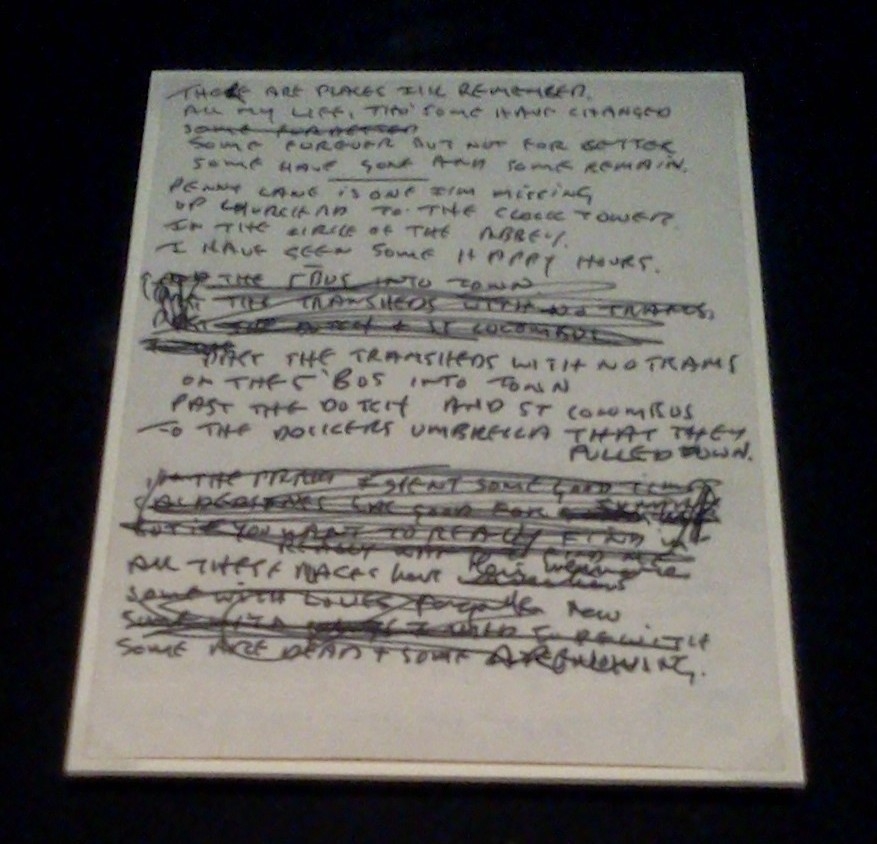 THERE ARE PLACES ILL REMEMBER.
ALL MY LIFE, THO' SOME HAVE CHANGED
SOME FOR BETTER
SOME FOREVER BUT NOT FOR BETTER
SOME HAVE GONE AND SOME REMAIN.
PENNY LANE IS ONE I'M MISSING
UP CHURCH RD TO THE CLOCK TOWER
IN THE CIRCLE OF THE ABBEY.
I HAVE SEEN SOME HAPPY HOURS.
THE 5 BUS INTO TOWN
PAST THE TRAMSHEDS WITH NO TRAMS,
PAST THE DUTCH & ST COLUMBUS
PAST THE TRAMSHEDS WITH NO TRAMS
ON THE 5 BUS INTO TOWN
PAST THE DUTCH AND ST COLUMBUS
TO THE DOCKERS UMBRELLA THAT THEY
PULLED DOWN.
IN THE I SPENT SOME GOOD
GOOD FOR
BUT IF YOU WANT TO REALLY FIND
REALLY WANT TO FIND
ALL THESE PLACES HAVE
SOME WITH LOVES forgotten Now
SOME WITH
SOME ARE DEAD + SOME ARE LIVING.